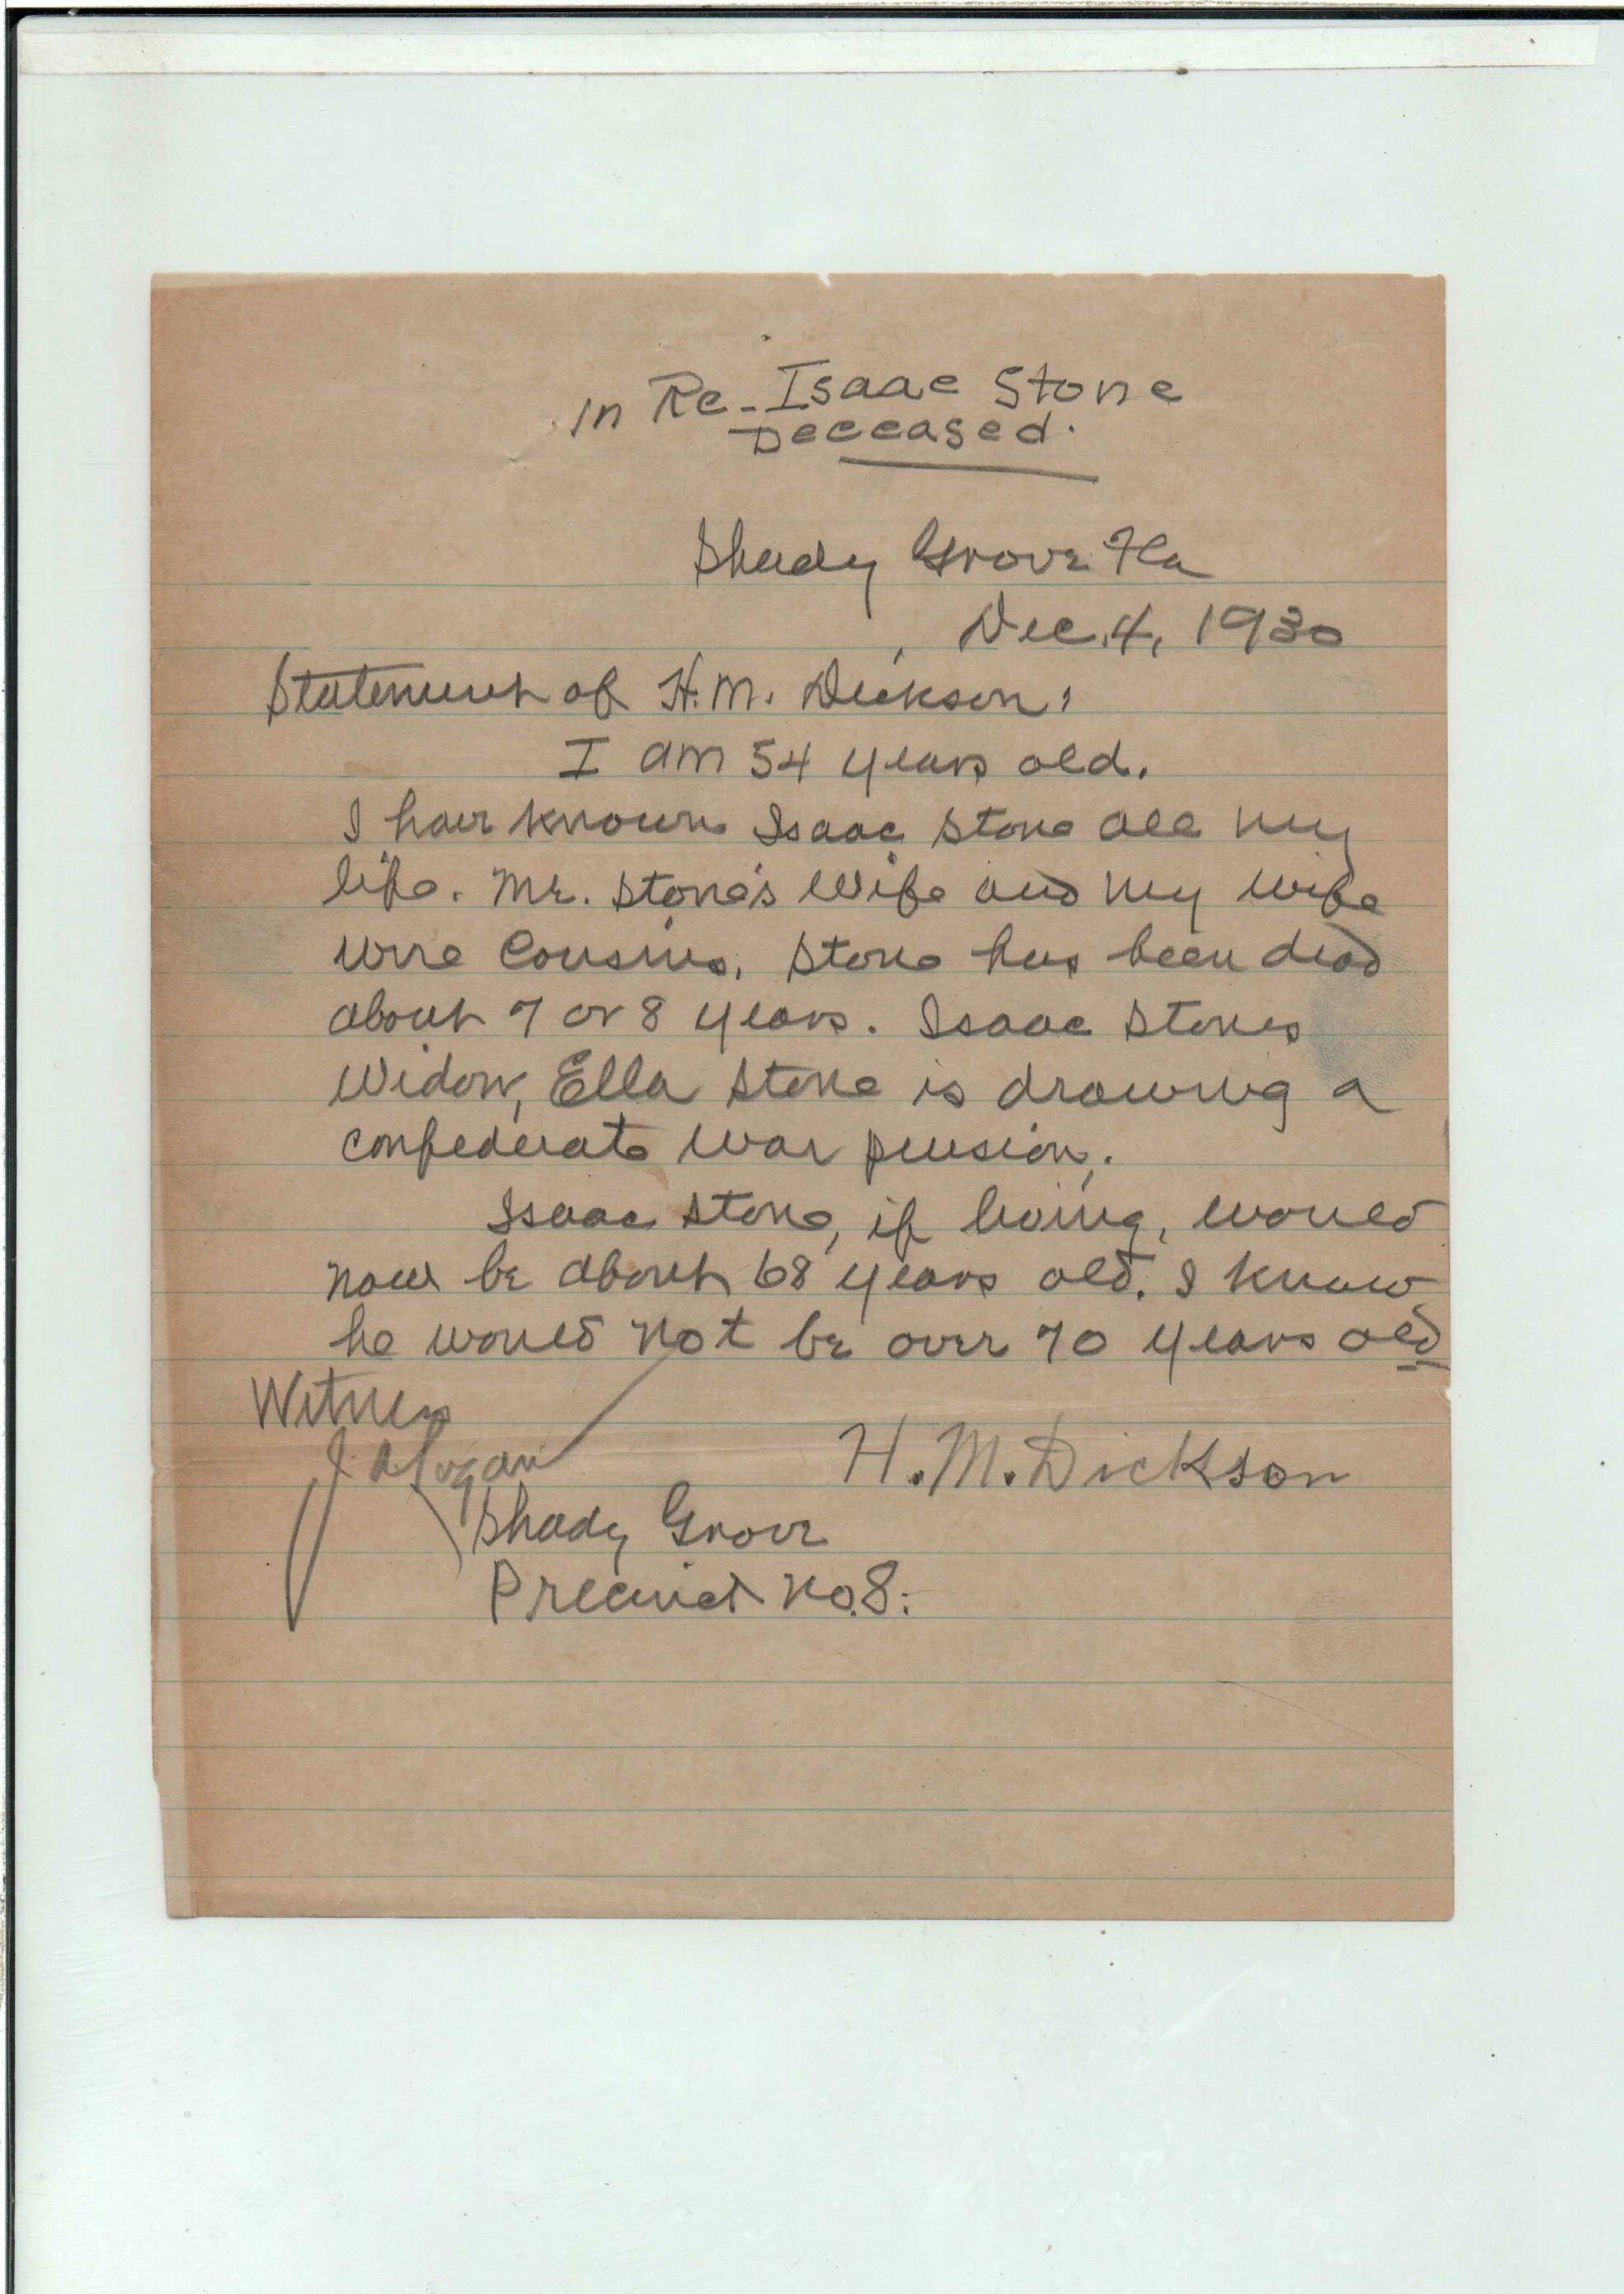 In Re - Isaac Stone
Deceased.
Shady Grove Fla
Dec. 4, 1930
Statement of H. M. Dickson:
I am 54 years old.
I have known Isaac Stone all my
life. Mr. Stone's Wife and my wife
were Cousins. Stone has been dead
about 7 or 8 years. Isaac Stones
Widow, Ella Stone is drawing a
confederate war pension.
Isaac Stone, if living, would
now be about 68 years old. I know
he would not be over 70 years old
Witness
H. M. Dickson
Shady Grove
Precinct No. 8.